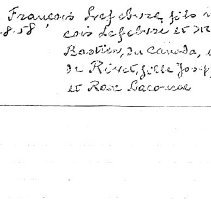 François Lefebvre, fils
8.58 çois Lefebvre et
Bastien, du Canada,
de Rivet, fille Jos
et Rose Lacourse